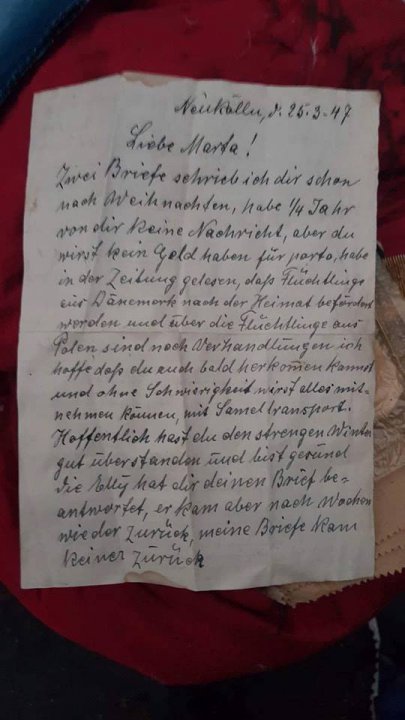 Neukölln, d. 25.3-47
Liebe Marta!
Zwei Briefe schrieb ich dir schon
nach Weihnachten, habe 1/4 Jahr
von dir keine Nachricht, aber du
wirst kein Geld haben für porto, habe
in der Zeitung gelesen, daß Flüchtlinge
aus Dänemark nach der Heimat befördert
werden und über die Flüchtlinge aus
Polen sind noch Verhandlungen ich
hoffe daß du auch bald herkommen kannst
und ohne Schwierigkeit wirst alles mit-
nehmen können, mit Sameltransport.
Hoffentlich hast du den strengen Winter
gut überstanden und bist gesund
die Elly hat dir deinen Brief be-
antwortet, er kam aber nach Wochen
wieder zurück, meine Briefe kam
keiner zurück